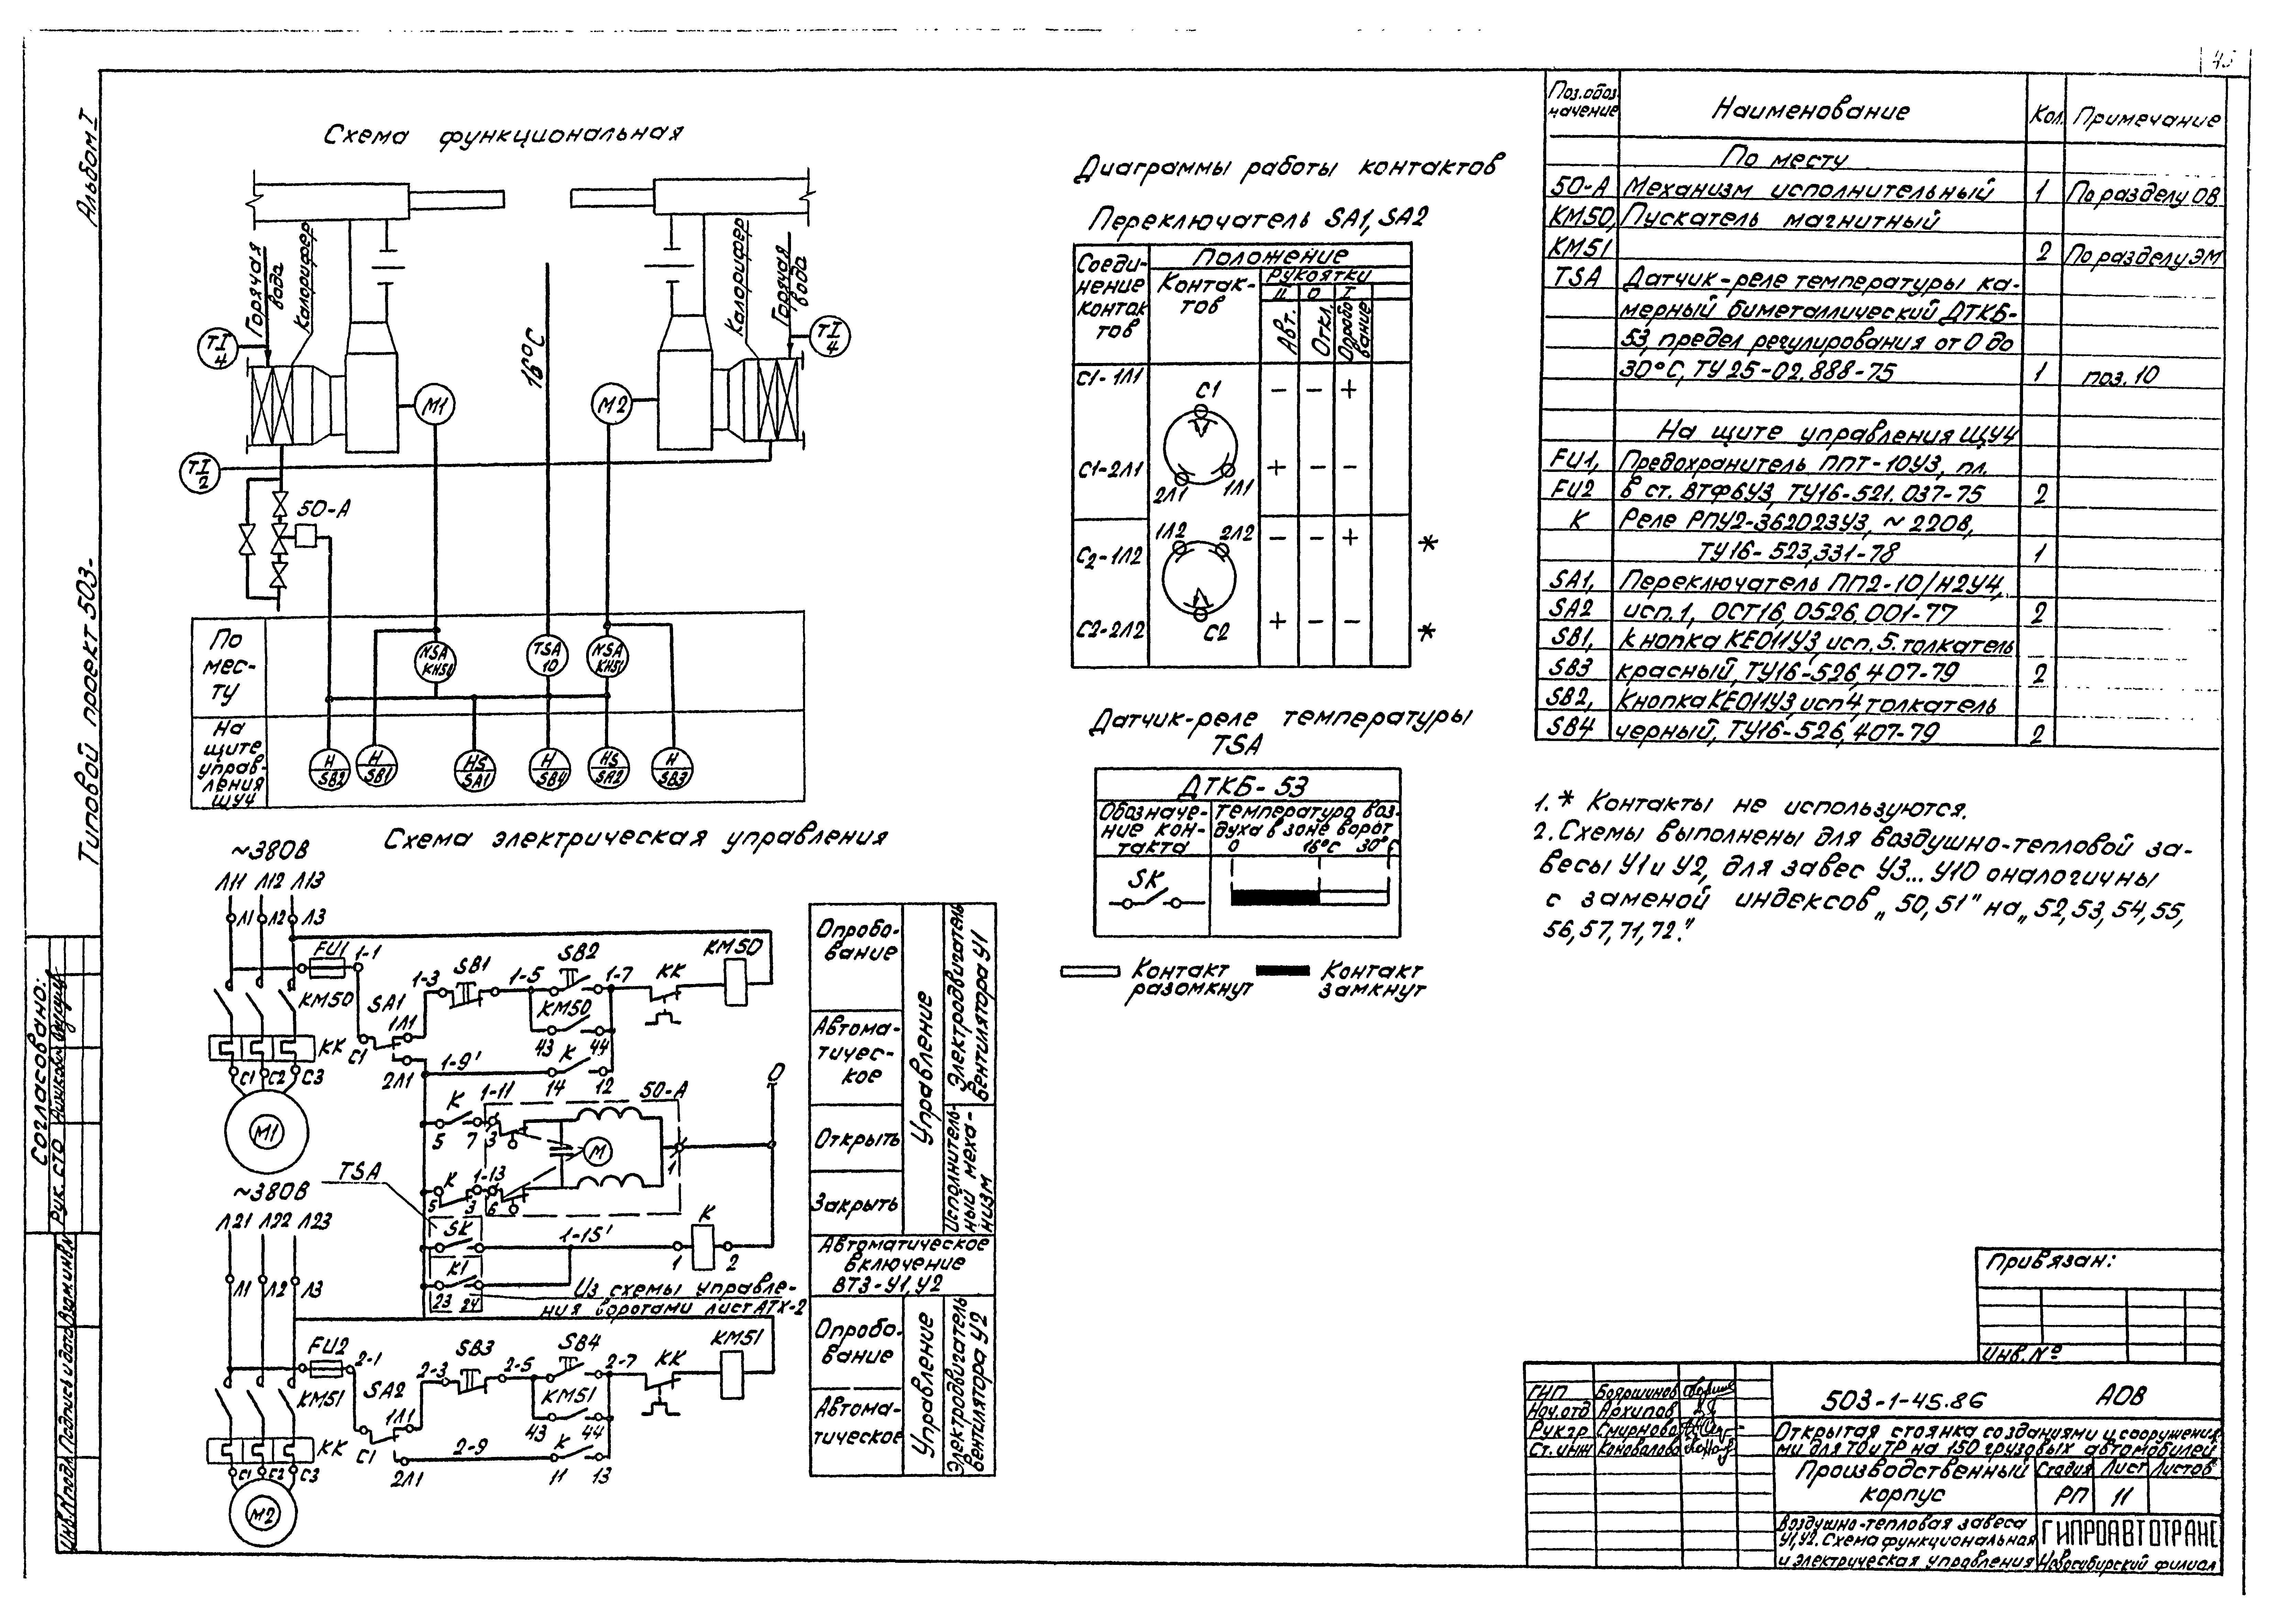 45
Альбом I
Типовой проект 503-
Согласовано:
Рук. СТО
Инв.№ подл.
Подпись и дата
Взам.инв.№
Схема функциональная
Горячая вода
Калорифер
Калорифер
Горячая вода
TI 4
TI 4
16°С
М1
М2
TI 2
50-А
По месту
NSA КМ50
TSA 10
NSA КМ51
На щите управления ЩУ4
H SB2
H SB1
HS SA1
H SB4
HS SA2
H SB3
Схема электрическая управления
~380В
Л11 Л12 Л13
Л1 Л2 Л3
FU1 1-1
КМ50
SA1
1-3 SB1 1-5 SB2 1-7 КК КМ50
1Л1
КМ50
43 44
КК
С1
2Л1
1-9'
К
14 12
С1 С2 С3
М1
К 1-11 50-А
5 7 3
М
1
0
TSA
К 1-13
5 3 6
SK
1-15'
К
1 2
К1
23 24
Из схемы управле-
ния воротами лист АТХ-2
~380В
Л21 Л22 Л23
Л1 Л2 Л3
FU2 2-1
КМ51
SA2
2-3 SB3 2-5 SB4 2-7 КК КМ51
1Л1
КМ51
43 44
КК
С1
2Л1
2-9
К
11 13
С1 С2 С3
М2
Опробо-
вание
Автома-
тичес-
кое
Открыть
Закрыть
Управление
Электродвигатель
вентилятора У1
Исполнитель-
ный меха-
низм
Автоматическое
включение
ВТЗ-У1, У2
Опробо-
вание
Автома-
тическое
Управление
Электродвигатель
вентилятора У2
Диаграммы работы контактов
Переключатель SA1, SA2
Соеди-
нение
контак
тов
Положение
Контак-
тов
Рукоятки
Авт.
Откл.
Опробо-
вание
С1-1Л1 – – +
С1
С1-2Л1 + – –
2Л1 1Л1
1Л2 2Л2
С2-1Л2 – – + *
С2
С2-2Л2 + – – *
Датчик-реле температуры
TSA
ДТКБ-53
Обозначе-
ние кон-
такта
Температура воз-
духа в зоне ворот
0 16°С 30°С
SK
Контакт
разомкнут
Контакт
замкнут
Поз.обоз
начение
Наименование
Кол.
Примечание
По месту
50-А Механизм исполнительный 1 По разделу ОВ
КМ50, Пускатель магнитный
КМ51 2 По разделу ЭМ
TSA Датчик-реле температуры ка-
мерный биметаллический ДТКБ-
53, предел регулирования от 0 до
30°С, ТУ 25-02.888-75 1 поз. 10
На щите управления ЩУ4
FU1, Предохранитель ППТ-10У3, пл.
FU2 в ст. ВТФ6У3, ТУ16-521.037-75 2
К Реле РПУ2-362023У3, ~220В,
ТУ16-523,331-78 1
SA1, Переключатель ПП2-10/Н2У4,
SA2 исп.1, ОСТ16,0526,001-77 2
SB1, кнопка КЕ011У3, исп.5. толкатель
SB3 красный, ТУ16-526,407-79 2
SB2, Кнопка КЕ011У3, исп4, толкатель
SB4 черный, ТУ16-526,407-79 2
1. * Контакты не используются.
2. Схемы выполнены для воздушно-тепловой за-
весы У1 и У2, для завес У3...У10 аналогичны
с заменой индексов „50,51" на „52,53,54,55,
56,57,71,72."
Привязан:
Инв.№
ГИП Бояршинов
Нач.отд Архипов
Рук.гр Смирнова
Ст.инж Коновалова
503-1-45.86 АОВ
Открытая стоянка со зданиями и сооружения-
ми для ТО и ТР на 150 грузовых автомобилей
Производственный
корпус
Стадия Лист Листов
РП 11
Воздушно-тепловая завеса
У1,У2. Схема функциональная
и электрическая управления
ГИПРОАВТОТРАНС
Новосибирский филиал